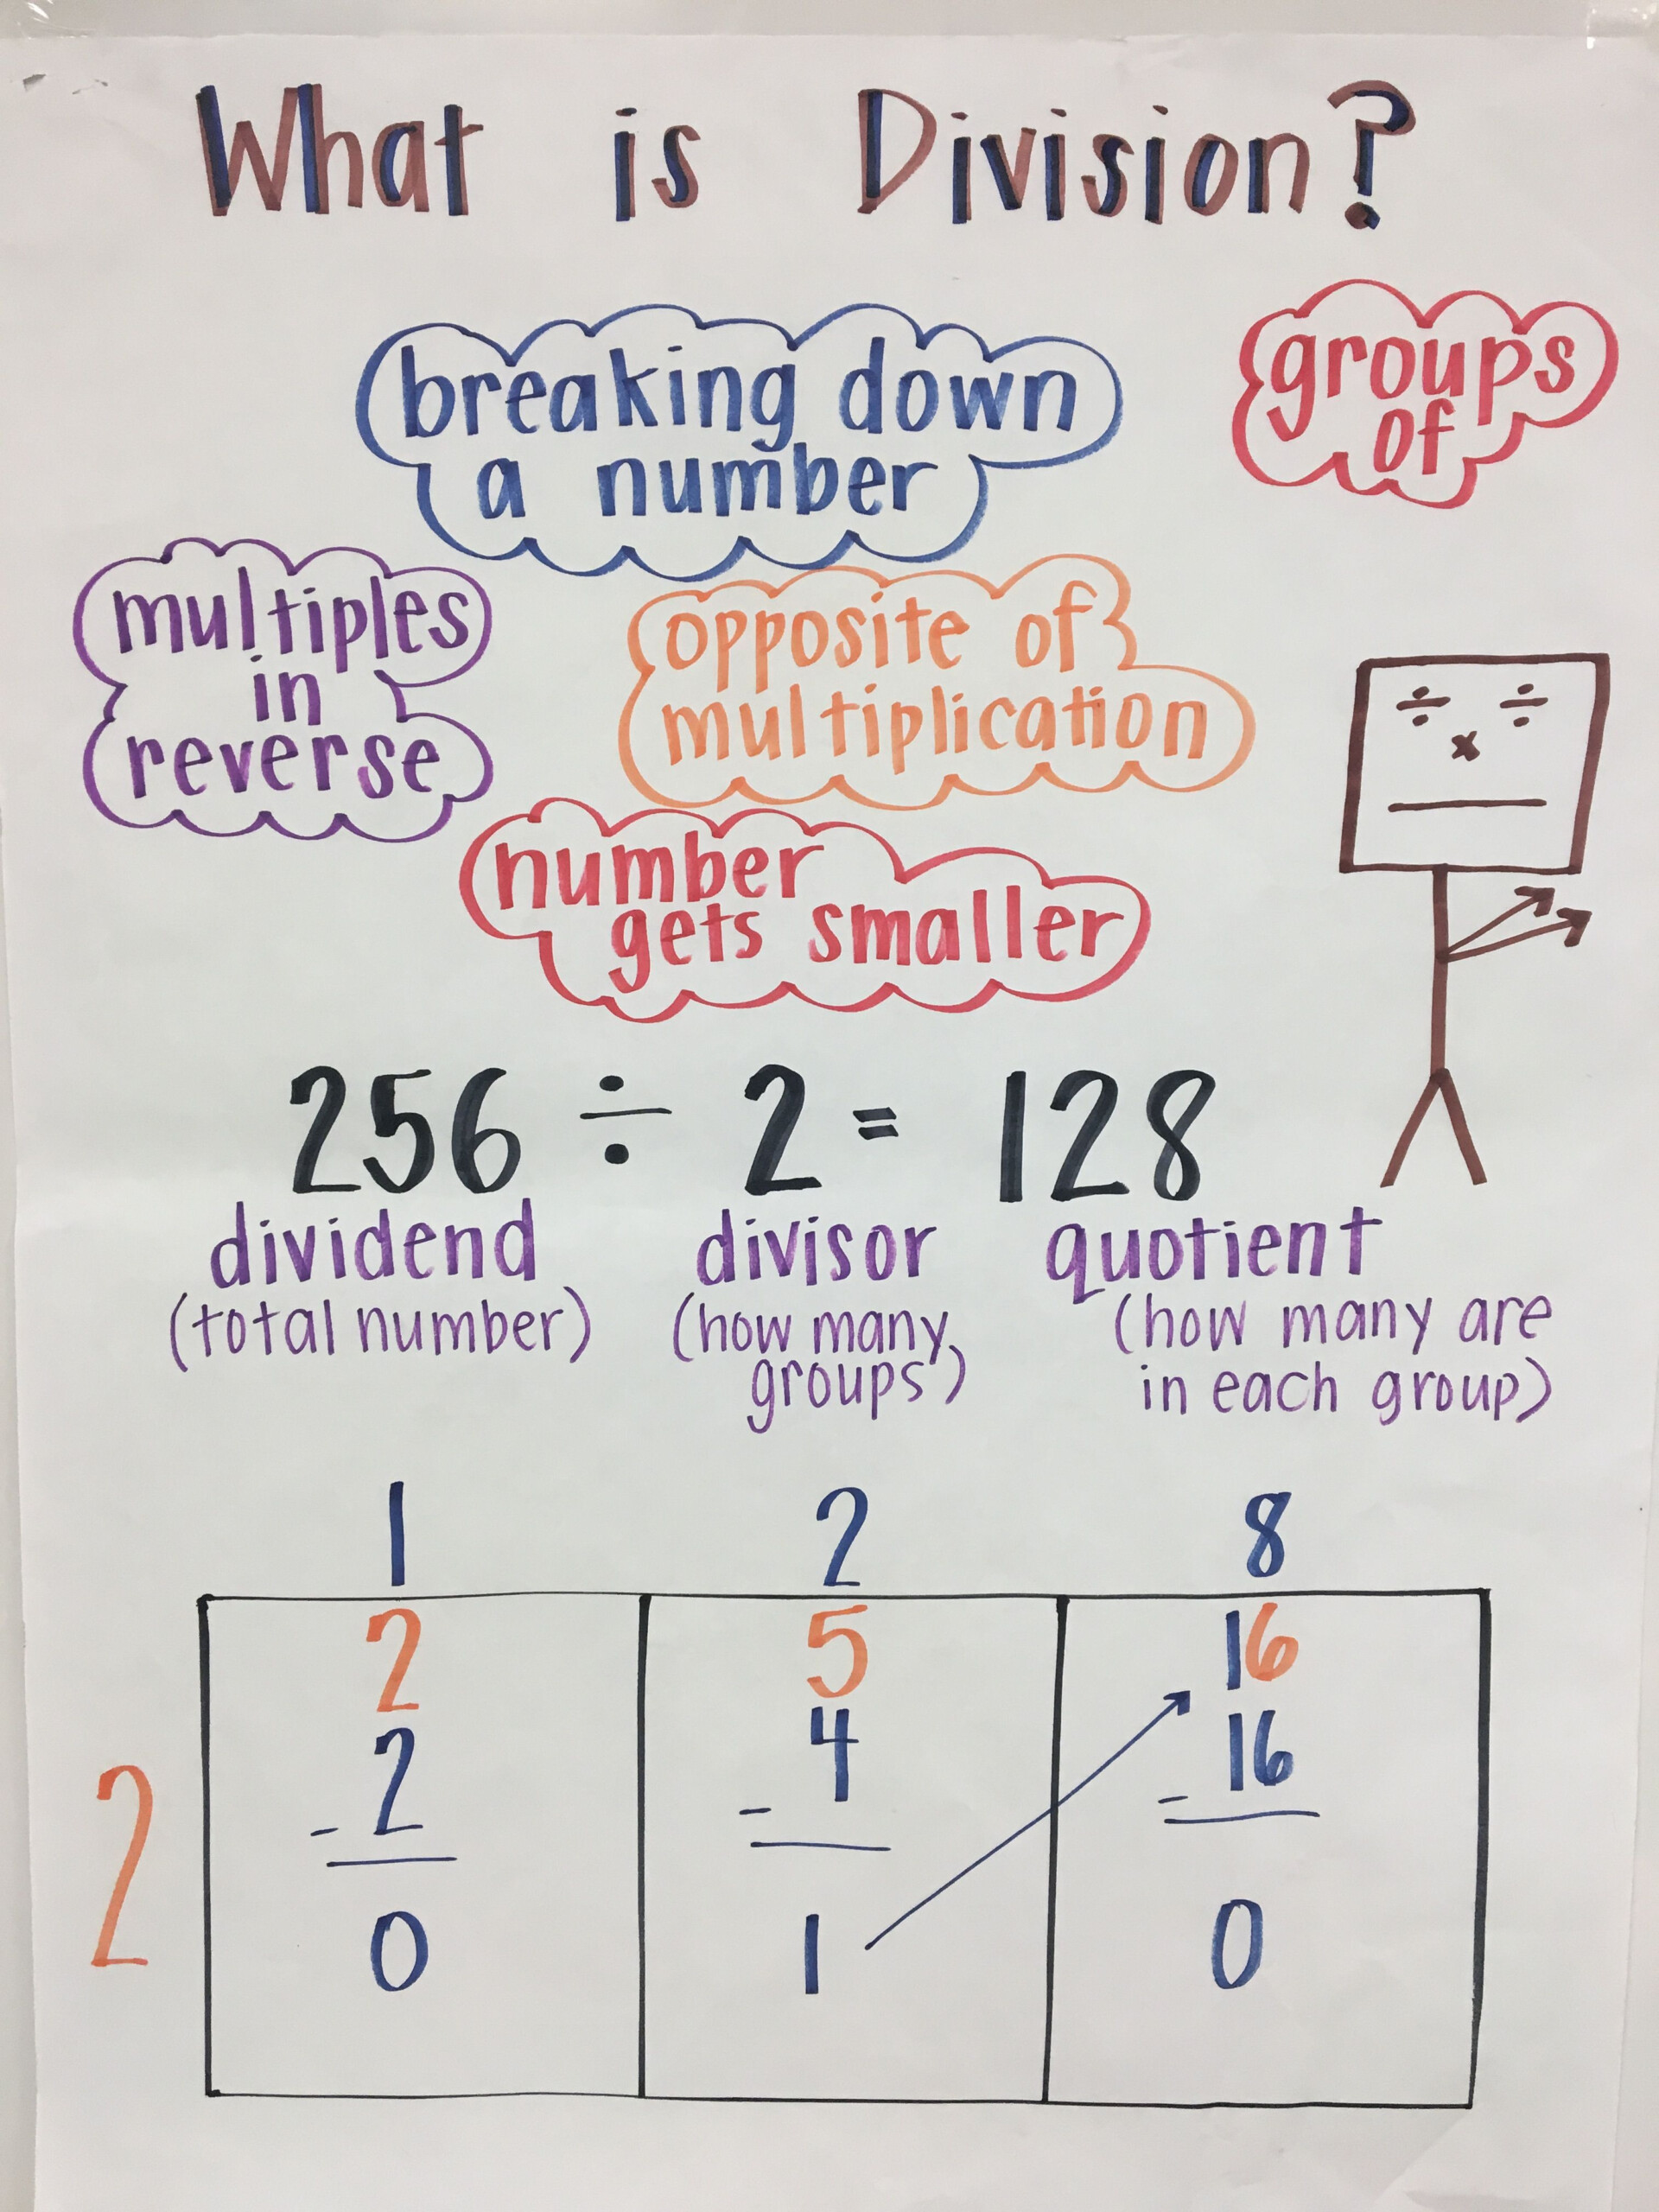 What is Division?
breaking down
a number
groups
of
multiples
in
reverse
opposite of
multiplication
number
gets smaller
÷ ÷
x
256 ÷ 2 = 128
dividend divisor quotient
(total number) (how many groups) (how many are
in each group)
1 2 8
2 5 16
2 - 2 - 4 - 16
0 1 0